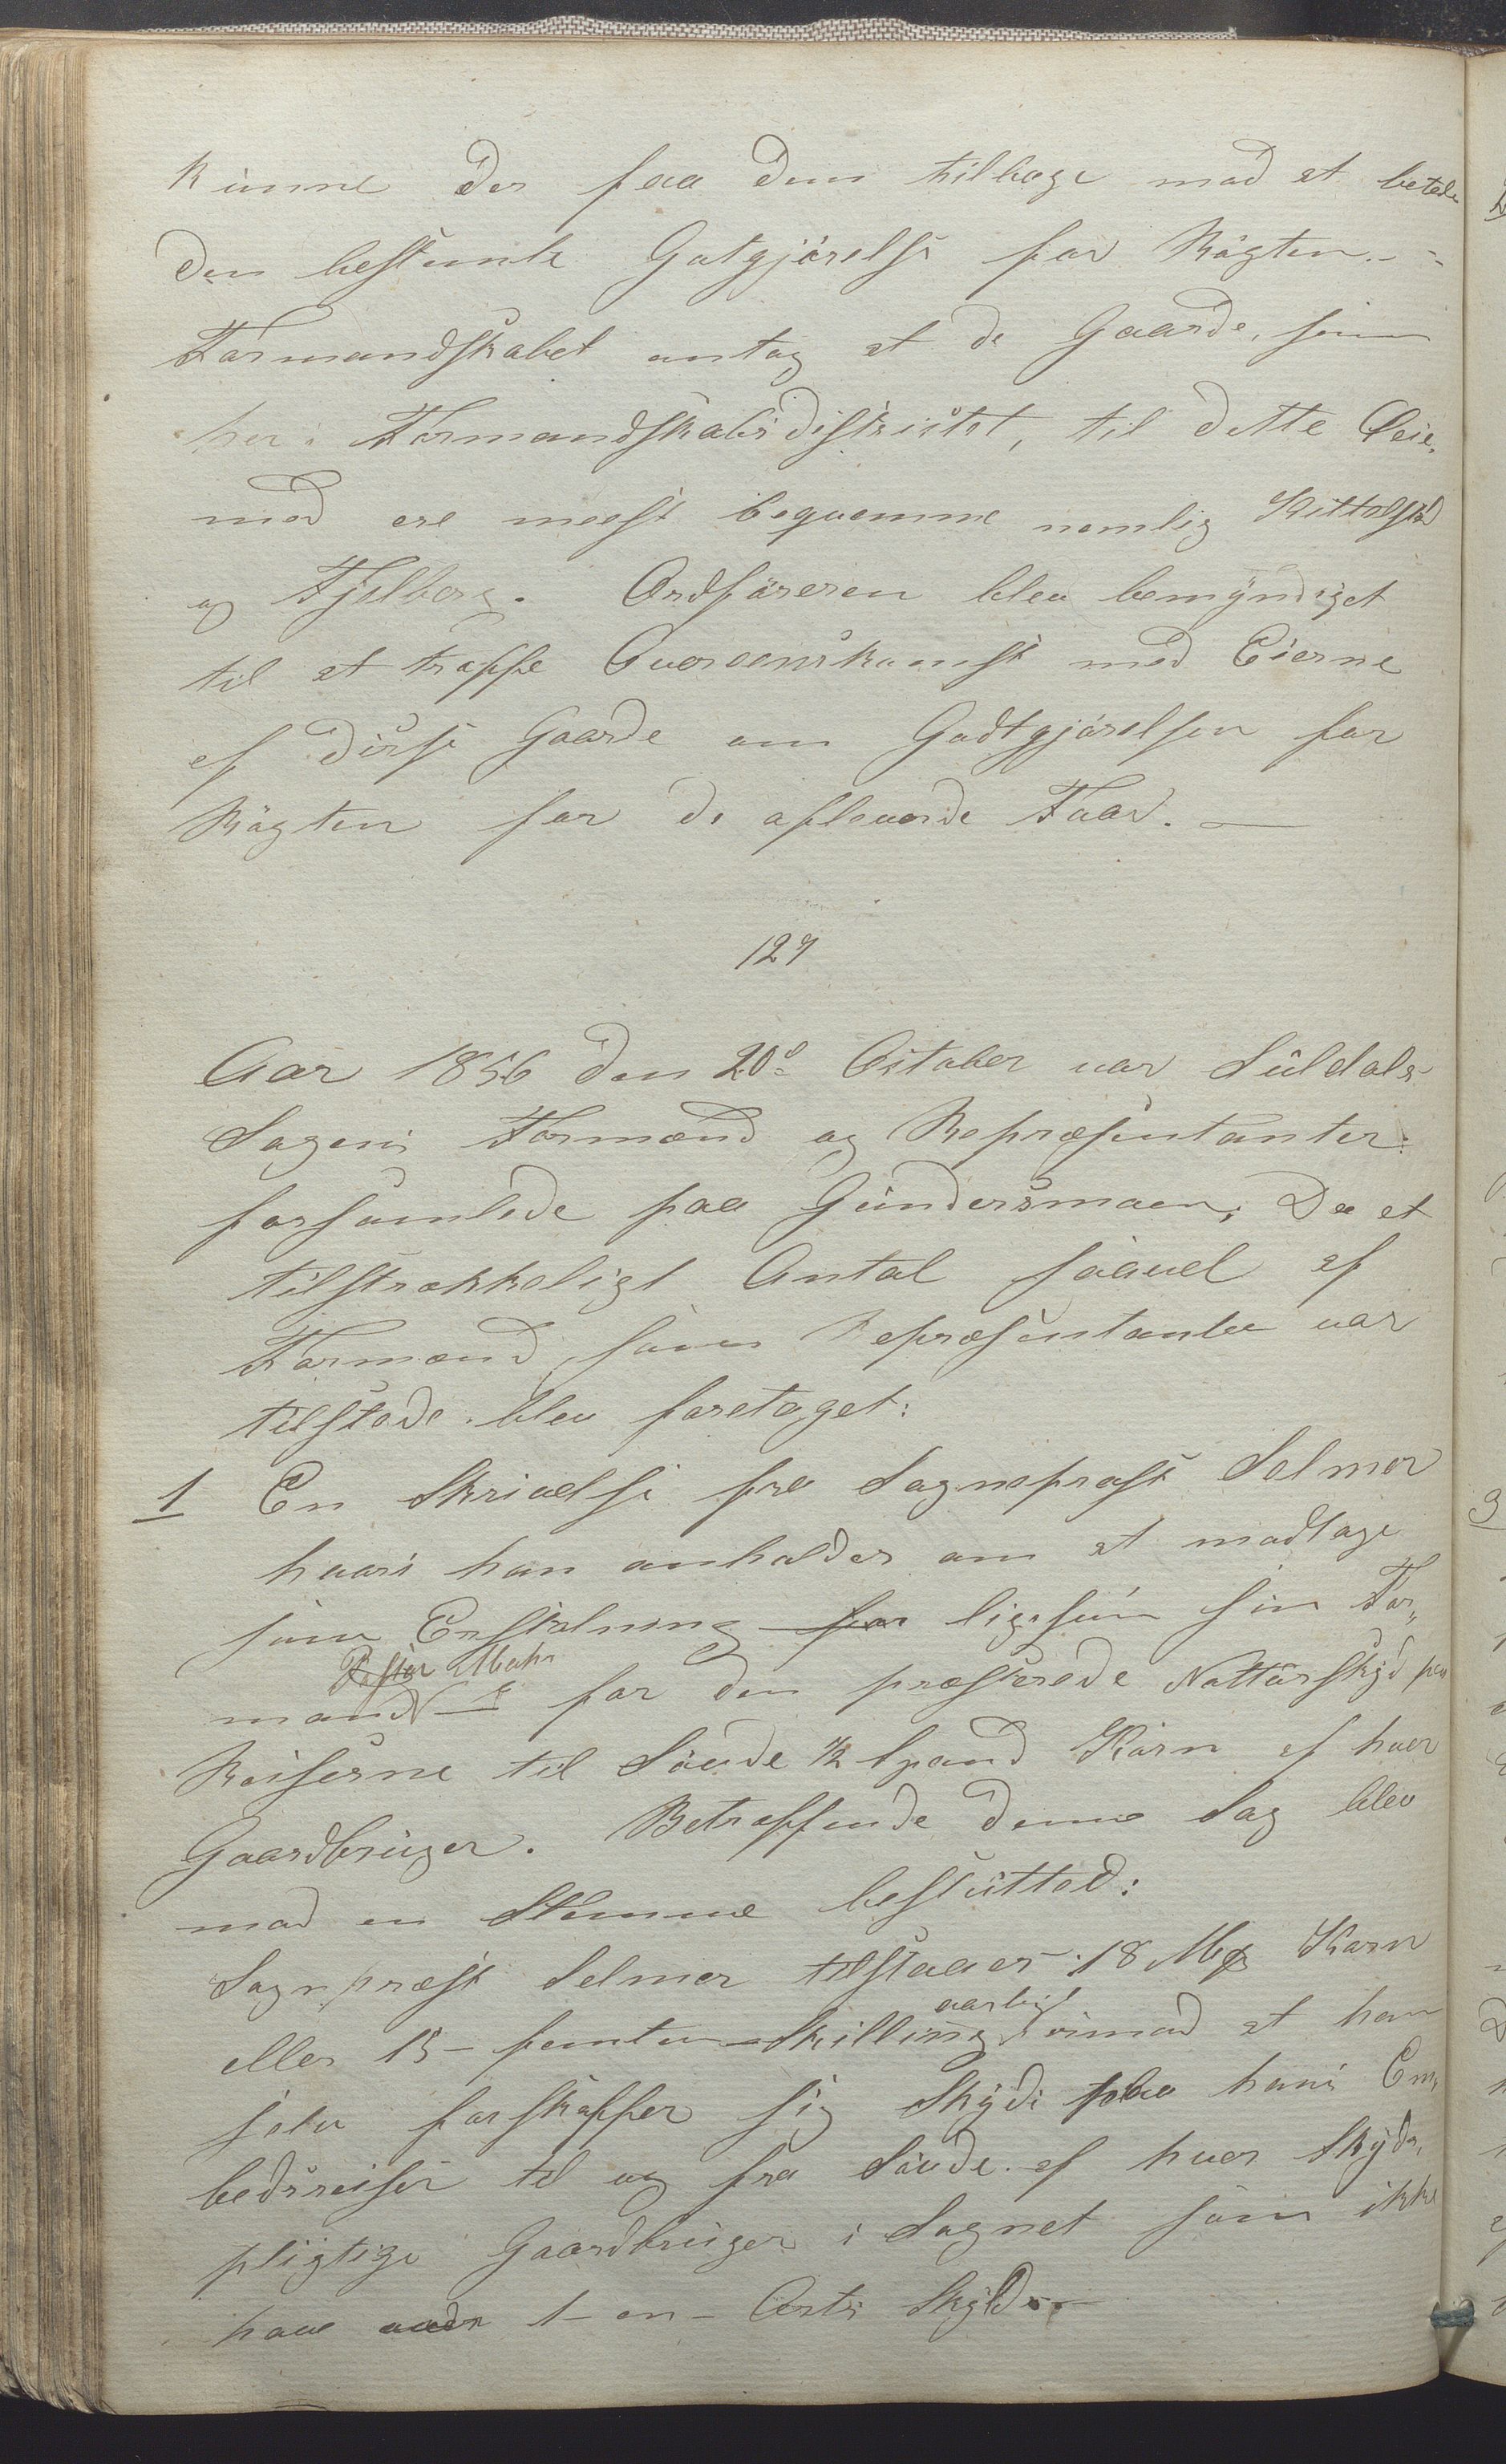 kunne der faa dem tilbage mod at betale
den bestemte Gotgjörelse for Rögten. -
Formandskabet antog at de Gaarde, som
her i Formandskabsdistriktet, til dette Øie,
med ere meest beqvemme nemlig Kittelsd
og Fjelberg. Ordföreren blev bemÿndiget
til at træffe Overeenskomst med Eierne
af disse Gaarde om Godtgjörelsen for
Rögten for de afleverede Faar. —
127
Aar 1856 den 20d October var Suldals
Sogns Formænd og Repræsentanter
forsamlede paa Gundersmoen; Da et
tilstrækkeligt Antal saavel af
Formænd som Repræsentanter var
tilstede blev foretaget:
1 En Skrivelse fra Sogneprest Selmer
hvori han anholder om at modtage
som Erstatning for ligesom sin For„
Pastor Mohn
mand for den præsterede Nottörskyd paa
Reiserne til Sövde 1/2 Spand Korn af hver
Gaardbruger. Betreffende denne Sag blev
mod en Stemme beslutted:
Sognprest Selmer tilstaaes 18 Mrk Korn
aarligt
eller 15 - femten Skilling imod at han
selv forskaffer sig Skyds paa hans Em„
bedsreiser til og fra Sövde af hver Skyds„
pligtige Gaardbruger i Sognet som ikke
have under 1 - en - Orts Skyld. -